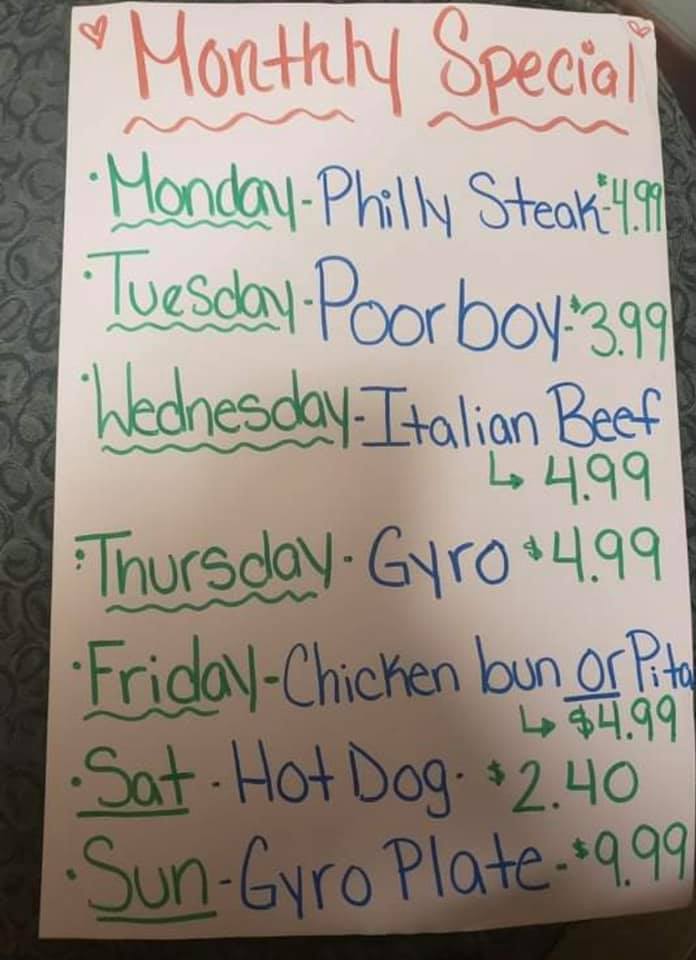 Monthly Special
·Monday-Philly Steak-$4.99
·Tuesday-Poor boy-$3.99
·Wednesday-Italian Beef
↳ 4.99
:Thursday-Gyro $4.99
·Friday-Chicken bun or Pita
↳ $4.99
·Sat-Hot Dog-$2.40
·Sun-Gyro Plate-$9.99